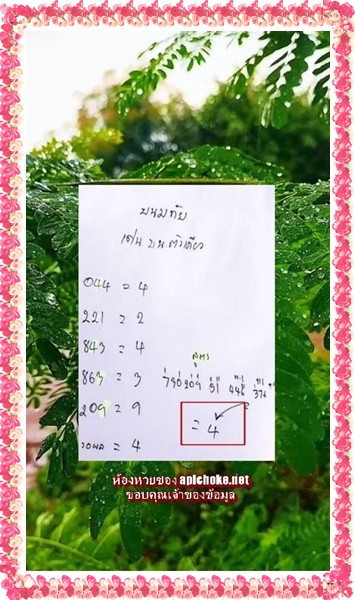 พนมทับ
เด่น บน ตัวเดียว
044 = 4
221 = 2
843 = 4
863 = 3
209 = 9
= 4
สูตร
790 209 51 446 374
= 4
ห้องหวยซอง aplchoke.net
ขอบคุณเจ้าของข้อมูล